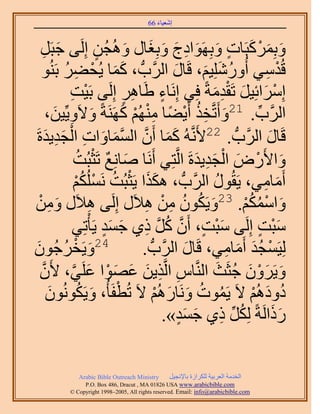 إشعياء 66
وَبِمَرْكَبَاتٍ وَبِهَوَادِجَ وَبِغَال وَهُجُنٍ إِلَى جَبَلِ
قُدْسِي أُورُشَلِيمَ، قَالَ الرَّبُّ، كَمَا يُحْضِرُ بَنُو
إِسْرَائِيلَ تَقْدِمَةً فِي إِنَاءٍ طَاهِرٍ إِلَى بَيْتِ
الرَّبِّ. 21وَأَتَّخِذُ أَيْضًا مِنْهُمْ كَهَنَةً وَلاَوِيِّينَ،
قَالَ الرَّبُّ. 22لأَنَّهُ كَمَا أَنَّ السَّمَاوَاتِ الْجَدِيدَةَ
وَالأَرْضَ الْجَدِيدَةَ الَّتِي أَنَا صَانِعٌ تَثْبُتُ
أَمَامِي، يَقُولُ الرَّبُّ، هكَذَا يَثْبُتُ نَسْلُكُمْ
وَاسْمُكُمْ. 23وَيَكُونُ مِنْ هِلاَل إِلَى هِلاَل وَمِنْ
سَبْتٍ إِلَى سَبْتٍ، أَنَّ كُلَّ ذِي جَسَدٍ يَأْتِي
لِيَسْجُدَ أَمَامِي، قَالَ الرَّبُّ. 24وَيَخْرُجُونَ
وَيَرَوْنَ جُثَثَ النَّاسِ الَّذِينَ عَصَوْا عَلَيَّ، لأَنَّ
دُودَهُمْ لاَ يَمُوتُ وَنَارَهُمْ لاَ تُطْفَأُ، وَيَكُونُونَ
رَذَالَةً لِكُلِّ ذِي جَسَدٍ».
Arabic Bible Outreach Ministry الخدمة العربية للكرازة بالإنجيل
P.O. Box 486, Dracut , MA 01826 USA www.arabicbible.com
© Copyright 1998–2005, All rights reserved. Email: info@arabicbible.com